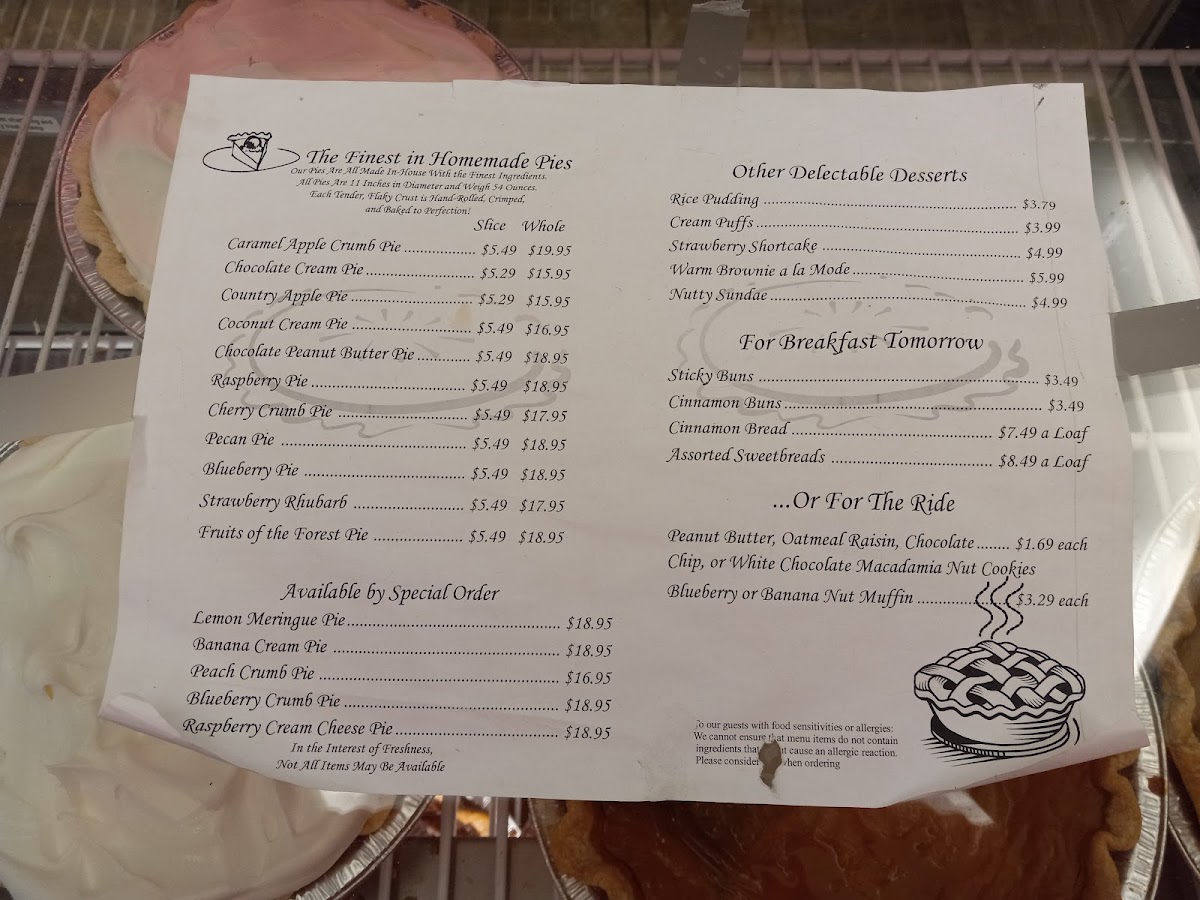 The Finest in Homemade Pies
Our Pies Are All Made In-House With the Finest Ingredients.
All Pies Are 11 Inches in Diameter and Weigh 54 Ounces.
Each Tender, Flaky Crust is Hand-Rolled, Crimped,
and Baked to Perfection!
Slice Whole
Caramel Apple Crumb Pie ................ $5.49 $19.95
Chocolate Cream Pie ........................ $5.29 $15.95
Country Apple Pie ........................... $5.29 $15.95
Coconut Cream Pie .......................... $5.49 $16.95
Chocolate Peanut Butter Pie ............ $5.49 $18.95
Raspberry Pie .................................. $5.49 $18.95
Cherry Crumb Pie ............................ $5.49 $17.95
Pecan Pie ........................................ $5.49 $18.95
Blueberry Pie ................................... $5.49 $18.95
Strawberry Rhubarb ........................ $5.49 $17.95
Fruits of the Forest Pie .................... $5.49 $18.95
Available by Special Order
Lemon Meringue Pie .............................................. $18.95
Banana Cream Pie ................................................. $18.95
Peach Crumb Pie .................................................... $16.95
Blueberry Crumb Pie .............................................. $18.95
Raspberry Cream Cheese Pie ................................... $18.95
In the Interest of Freshness,
Not All Items May Be Available
Other Delectable Desserts
Rice Pudding ........................................................ $3.79
Cream Puffs .......................................................... $3.99
Strawberry Shortcake ............................................ $4.99
Warm Brownie a la Mode ...................................... $5.99
Nutty Sundae ........................................................ $4.99
For Breakfast Tomorrow
Sticky Buns ........................................................... $3.49
Cinnamon Buns ..................................................... $3.49
Cinnamon Bread .......................................... $7.49 a Loaf
Assorted Sweetbreads ................................... $8.49 a Loaf
...Or For The Ride
Peanut Butter, Oatmeal Raisin, Chocolate ........ $1.69 each
Chip, or White Chocolate Macadamia Nut Cookies
Blueberry or Banana Nut Muffin ....................... $3.29 each
To our guests with food sensitivities or allergies:
We cannot ensure that menu items do not contain
ingredients that cause an allergic reaction.
Please consider when ordering